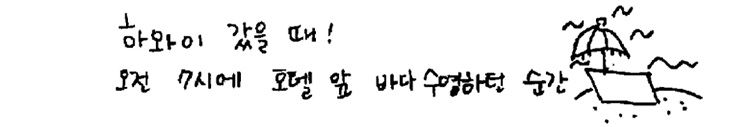 하와이 갔을 때!
오전 7시에 호텔 앞 바다 수영하던 순간